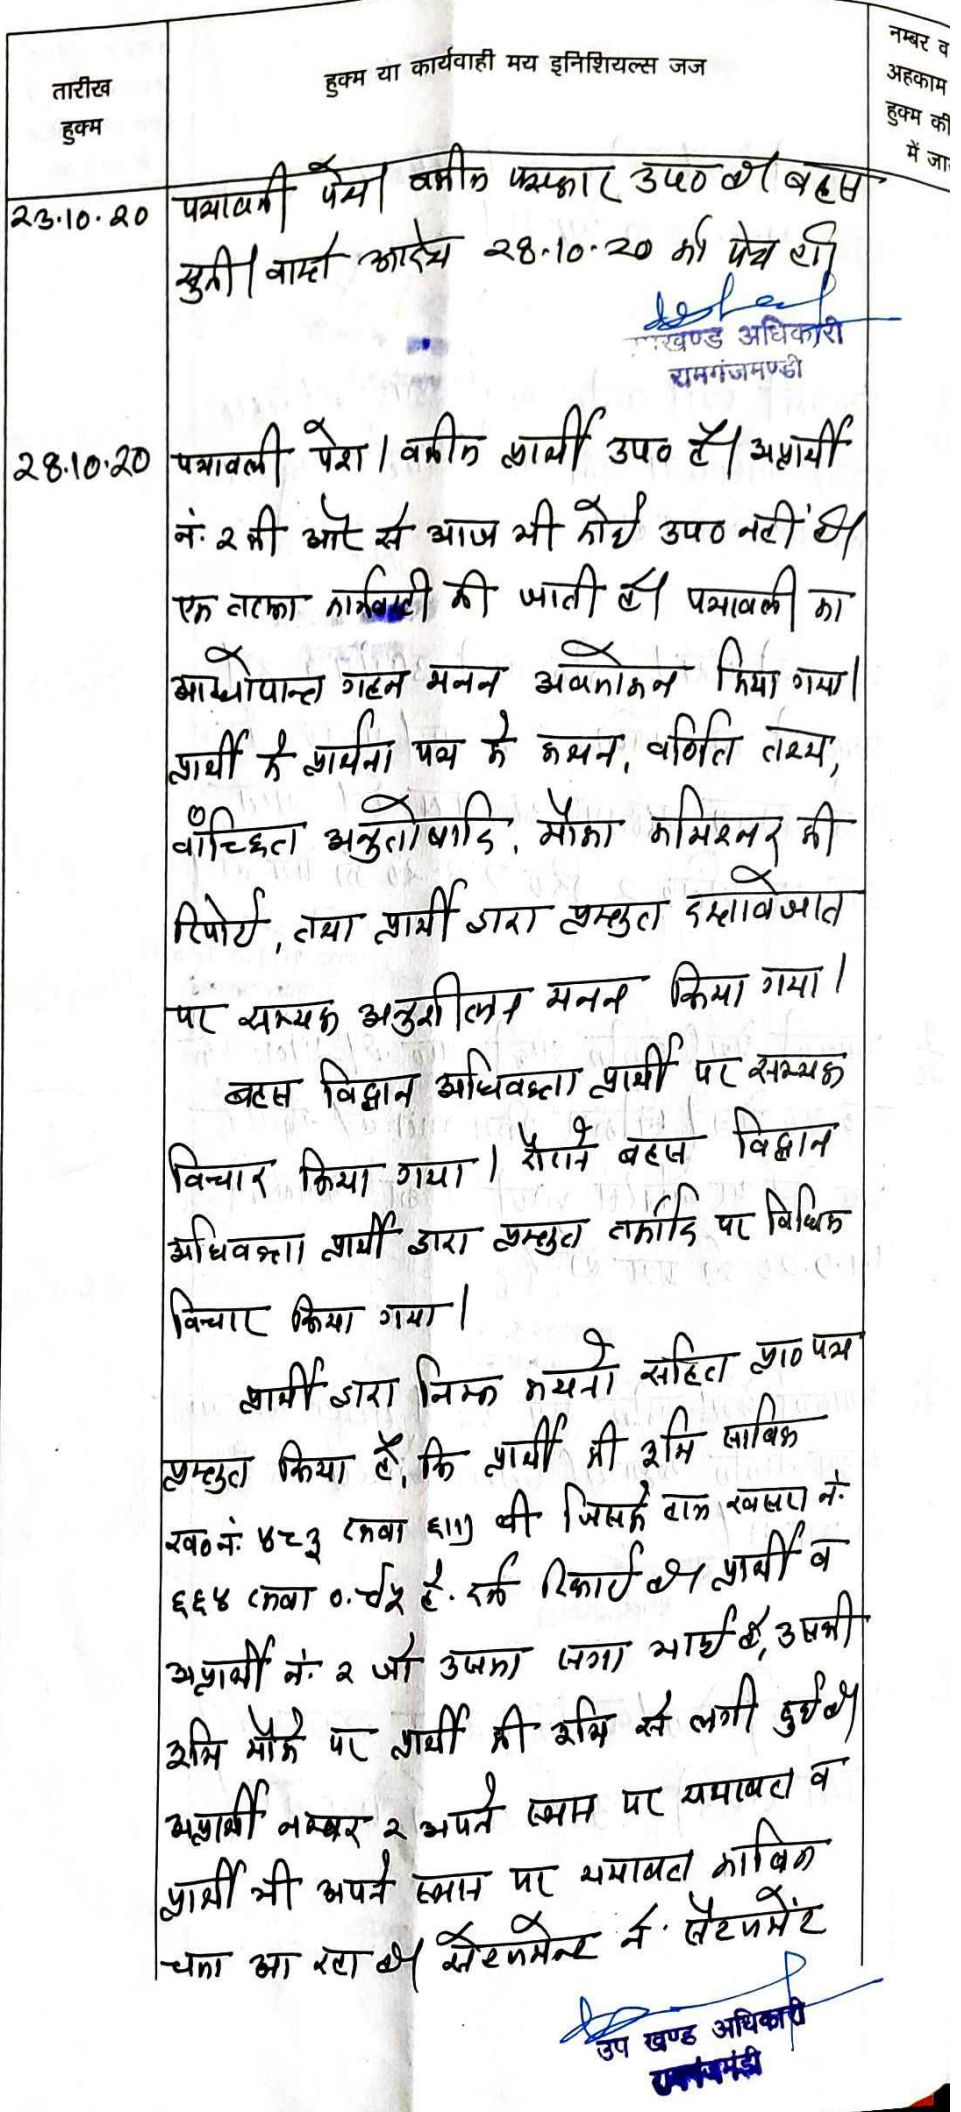 तारीख
हुक्म
हुक्म या कार्यवाही मय इनिशियल्स जज
नम्बर व
अहकाम
हुक्म की
में जा
23.10.20 पत्रावली पेश। वकील पक्षकार उप० है। बहस
सुनी। वास्ते आदेश 28.10.20 को पेश हो।
खण्ड अधिकारी
रामगंजमण्डी
28.10.20 पत्रावली पेश। वकील प्रार्थी उप० है। अप्रार्थी
नं. 2 की ओर से आज भी कोई उप० नहीं है।
एक तरफा कार्यवाही की जाती है। पत्रावली का
आद्योपान्त गहन मनन अवलोकन किया गया।
प्रार्थी के प्रार्थना पत्र के कथन, वर्णित तथ्य,
वांच्छित अनुतोषादि, मौका कमिश्नर की
रिपोर्ट, तथा प्रार्थी द्वारा प्रस्तुत दस्तावेजात
पर सम्यक अनुशीलन मनन किया गया।
बहस विद्वान अधिवक्ता प्रार्थी पर सम्यक
विचार किया गया। दौराने बहस विद्वान
अधिवक्ता प्रार्थी द्वारा प्रस्तुत तर्कादि पर विधिक
विचार किया गया।
प्रार्थी द्वारा निम्न कथनो सहित प्रा० पत्र
प्रस्तुत किया है, कि प्रार्थी की भूमि साबिक
ख० नं. ४८३ रकबा ६।।।) थी जिसके हाल खसरा नं.
६६४ रकबा ०.९५ है. दर्ज रिकार्ड है। प्रार्थी व
अप्रार्थी नं. २ जो उसका सगा भाई है, उसकी
भूमि मौके पर प्रार्थी की भूमि से लगी हुई है।
अप्रार्थी नम्बर २ अपने स्थान पर यथावत व
प्रार्थी भी अपने स्थान पर यथावत काबिज
चला आ रहा है। सेटलमेन्ट ने सेटलमेंट
उप खण्ड अधिकारी
रामगंजमंडी